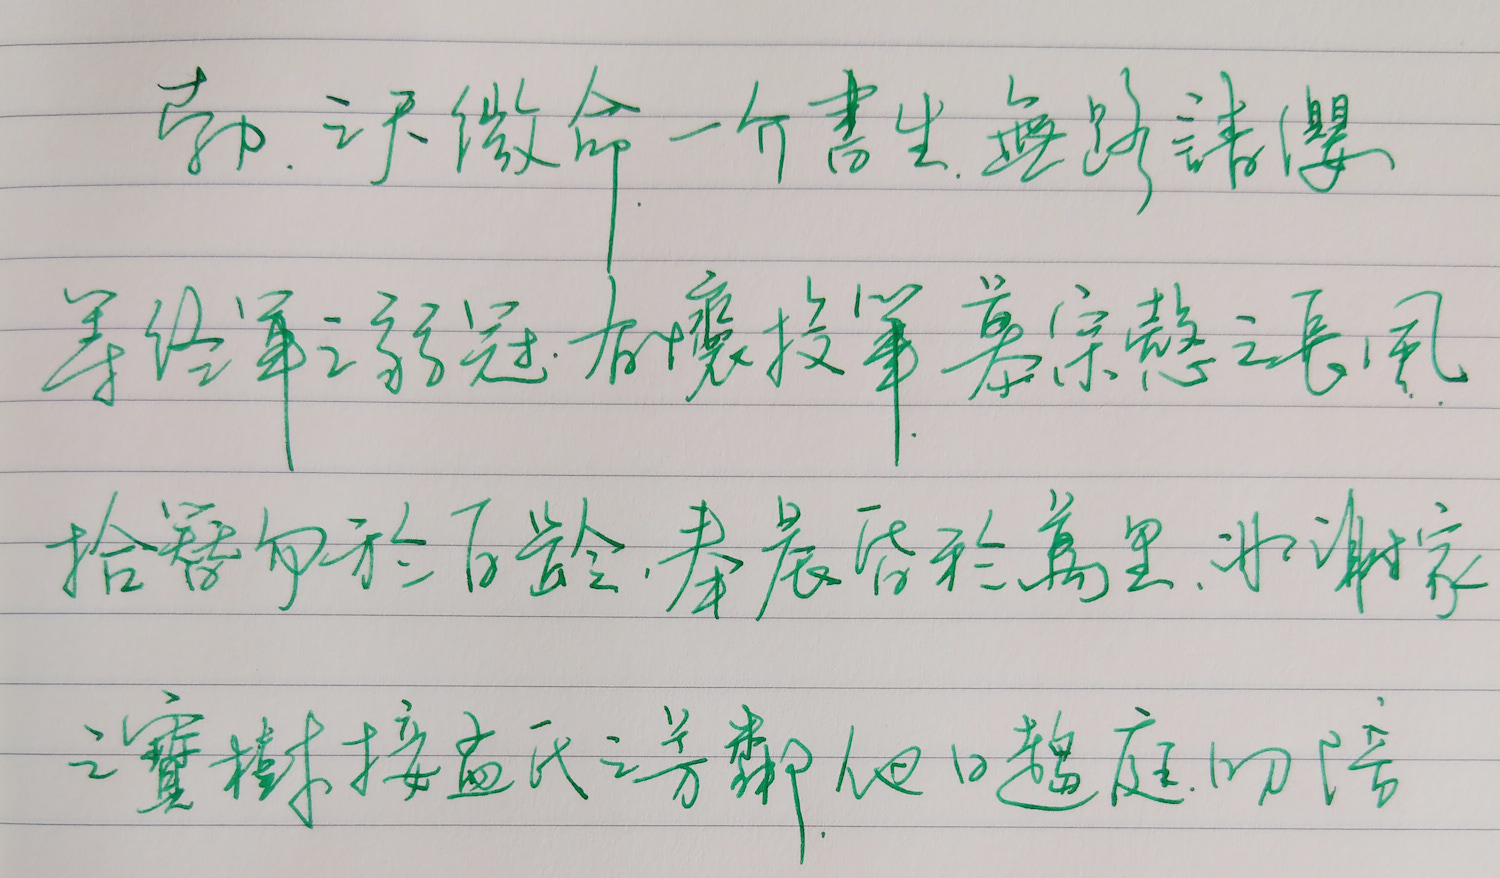 勃.三尺微命.一介書生.無路請纓
等終軍之弱冠.有懷投筆.慕宗愨之長風.
拾簪笏於百齡.奉晨昏於萬里.非謝家
之寶樹接孟氏之芳鄰.他日趨庭.叨陪